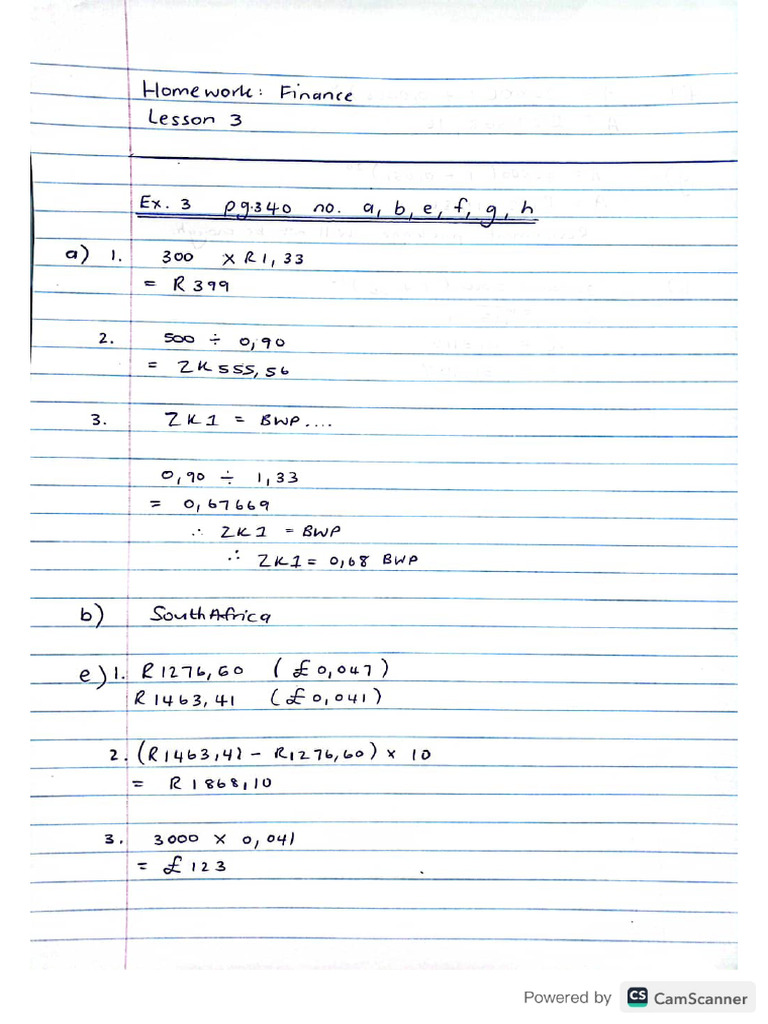 Homework: Finance
Lesson 3
Ex. 3 pg.340 no. a, b, e, f, g, h
a) 1. 300 × R1,33
= R399
2. 500 ÷ 0,90
= ZK555,56
3. ZK1 = BWP....
0,90 ÷ 1,33
= 0,67669
∴ ZK1 = BWP
∴ ZK1 = 0,68 BWP
b) South Africa
e) 1. R1276,60 (£0,047)
R1463,41 (£0,041)
2. (R1463,41 − R1276,60) × 10
= R1868,10
3. 3000 × 0,041
= £123
Powered by CS CamScanner